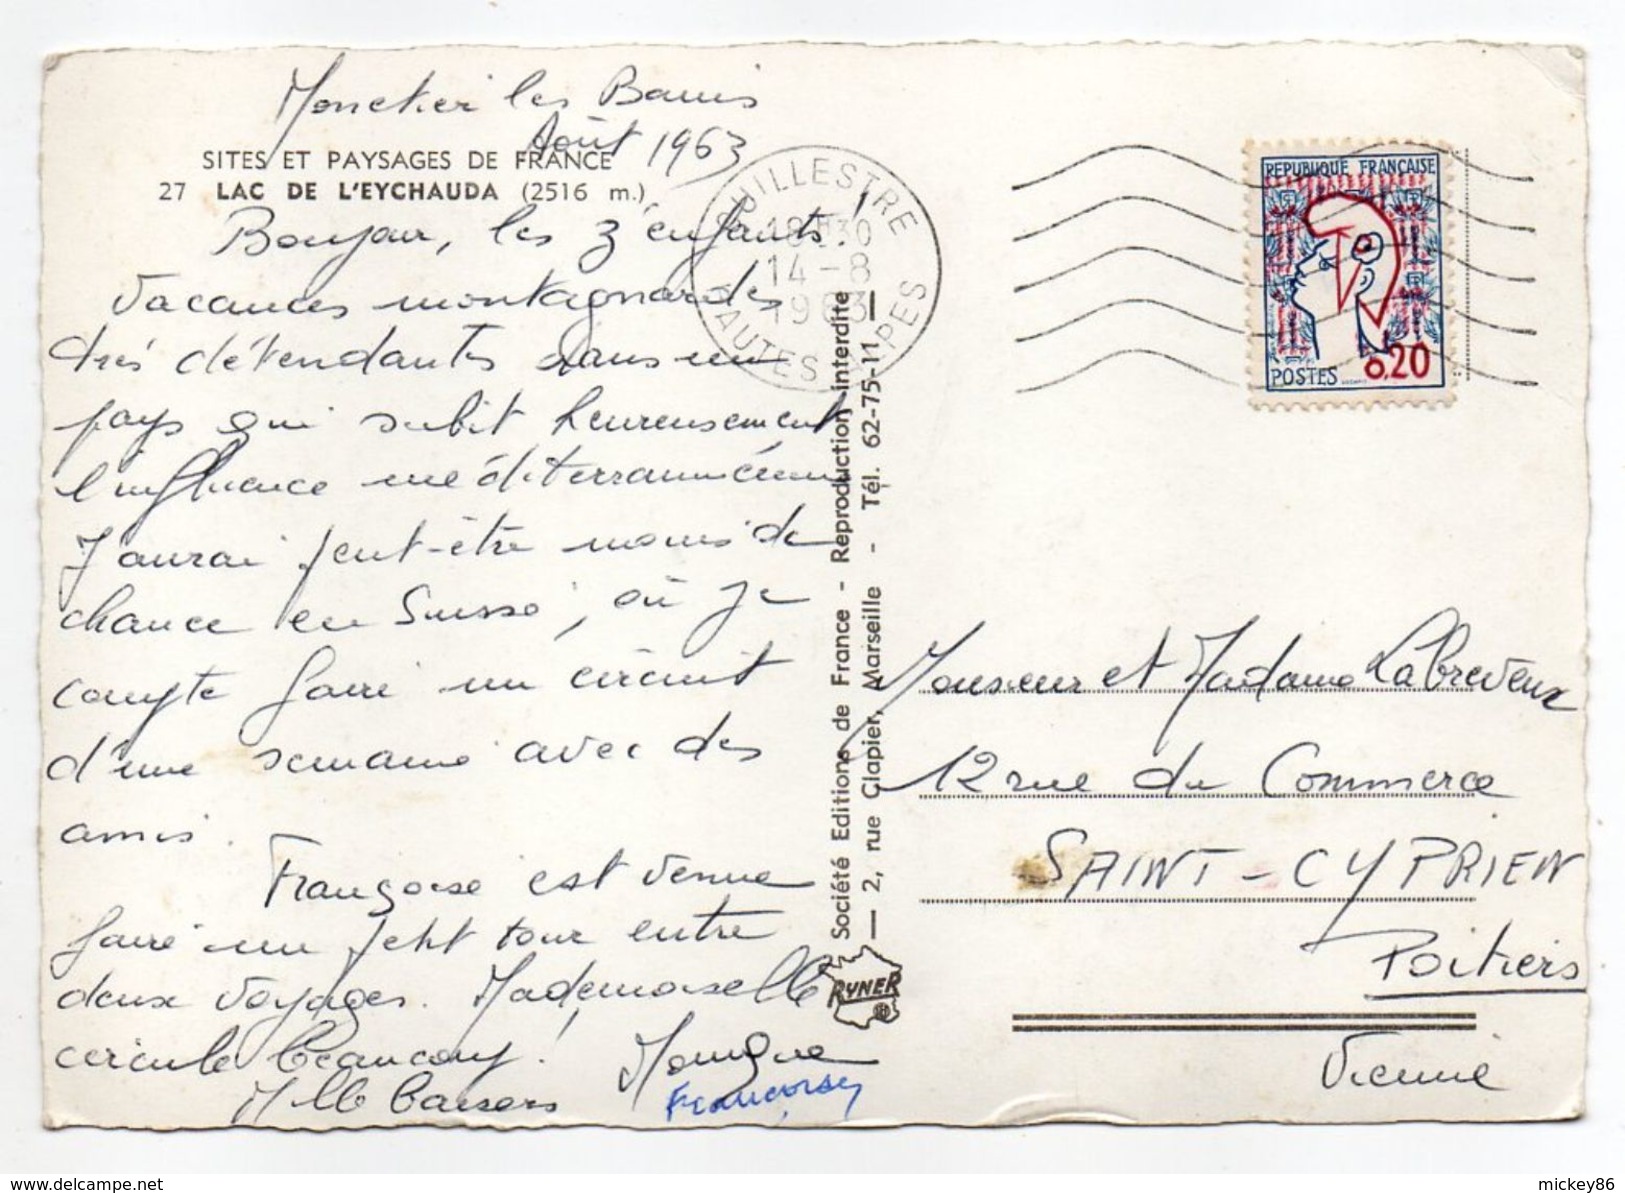 Monetier les Bains
Août 1963
SITES ET PAYSAGES DE FRANCE
27 LAC DE L'EYCHAUDA (2516 m.)
Bonjour, les 3 enfants.
Vacances montagnardes
très détendantes dans un
pays qui subit heureusement
l'influence méditerranéenne
J'aurai peut-être moins de
chance en Suisse, où je
compte faire un circuit
d'une semaine avec des
amis.
Françoise est venue
faire un petit tour entre
deux voyages. Mademoiselle
circule beaucoup !
Mille baisers
Monique
GUILLESTRE
18H30
14-8
1963
HAUTES ALPES
Société Editions de France - Reproduction interdite
2, rue Clapier, Marseille - Tél. 62-75-11
RYNER
REPUBLIQUE FRANÇAISE
POSTES 0,20
Monsieur et Madame Labreveux
12 rue du Commerce
SAINT-CYPRIEN
Poitiers
Vienne
mickey86